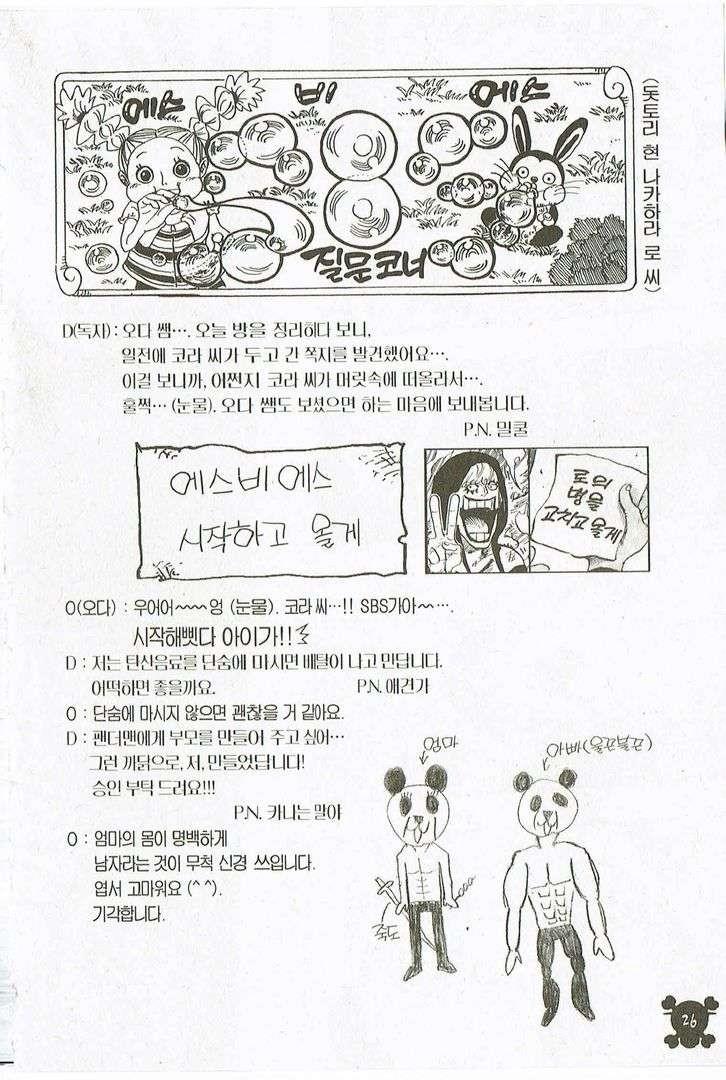 에스 비 에스
질문코너
(돗토리 현 나카하라 로 씨)
D(독자) : 오다 쌤…. 오늘 방을 정리하다 보니,
일전에 코라 씨가 두고 간 쪽지를 발견했어요….
이걸 보니까, 어쩐지 코라 씨가 머릿속에 떠올라서….
훌쩍… (눈물). 오다 쌤도 보셨으면 하는 마음에 보내봅니다.
P.N. 밀쿨
에스비에스
시작하고 올게
로의
병을
고치고 올게
O(오다) : 우어어~~~엉 (눈물). 코라 씨…!! SBS가아~….
시작해뻿다 아이가!!
D : 저는 탄산음료를 단숨에 마시면 배탈이 나고 만답니다.
어떡하면 좋을까요.
P.N. 애건가
O : 단숨에 마시지 않으면 괜찮을 거 같아요.
D : 팬더맨에게 부모를 만들어 주고 싶어…
그런 까닭으로, 저, 만들었답니다!
승인 부탁 드려요!!!
P.N. 카니는 말야
O : 엄마의 몸이 명백하게
남자라는 것이 무척 신경 쓰입니다.
엽서 고마워요 (^ ^).
기각합니다.
엄마
아빠(울끈불끈)
죽도
26